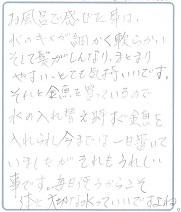 お風呂で感じた事は、
水のキメが細かく軟らかい
そして髪がしんなり、まとまり
やすい。とても気持いいです。
それと金魚を買っているので
水の入れ替え時すぐ金魚を
入れられ今までは一日置いて
いましたがそれもうれしい
事です。毎日使うからこそ
体に大切な水っていいですよね。